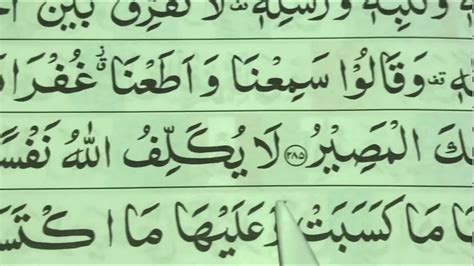 وَرُسُلِهٖ لَا نُفَرِّقُ بَيْنَ
وَقَالُوْا سَمِعْنَا وَاَطَعْنَا غُفْرَا
كَ الْمَصِيْرُ ﴿۲۸۵﴾ لَا يُكَلِّفُ اللّٰهُ نَفْسًا
مَا كَسَبَتْ وَعَلَيْهَا مَا اكْتَسَ